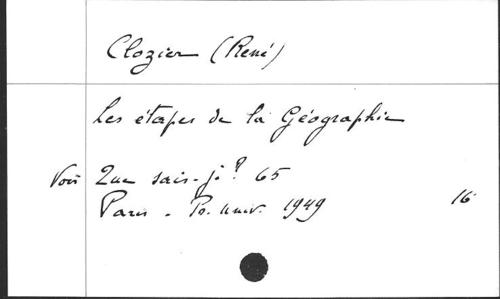 Clozier (René)
Les étapes de la Géographie
Voir Que sais-je? 65
Paris - Pr. univ. 1949 16